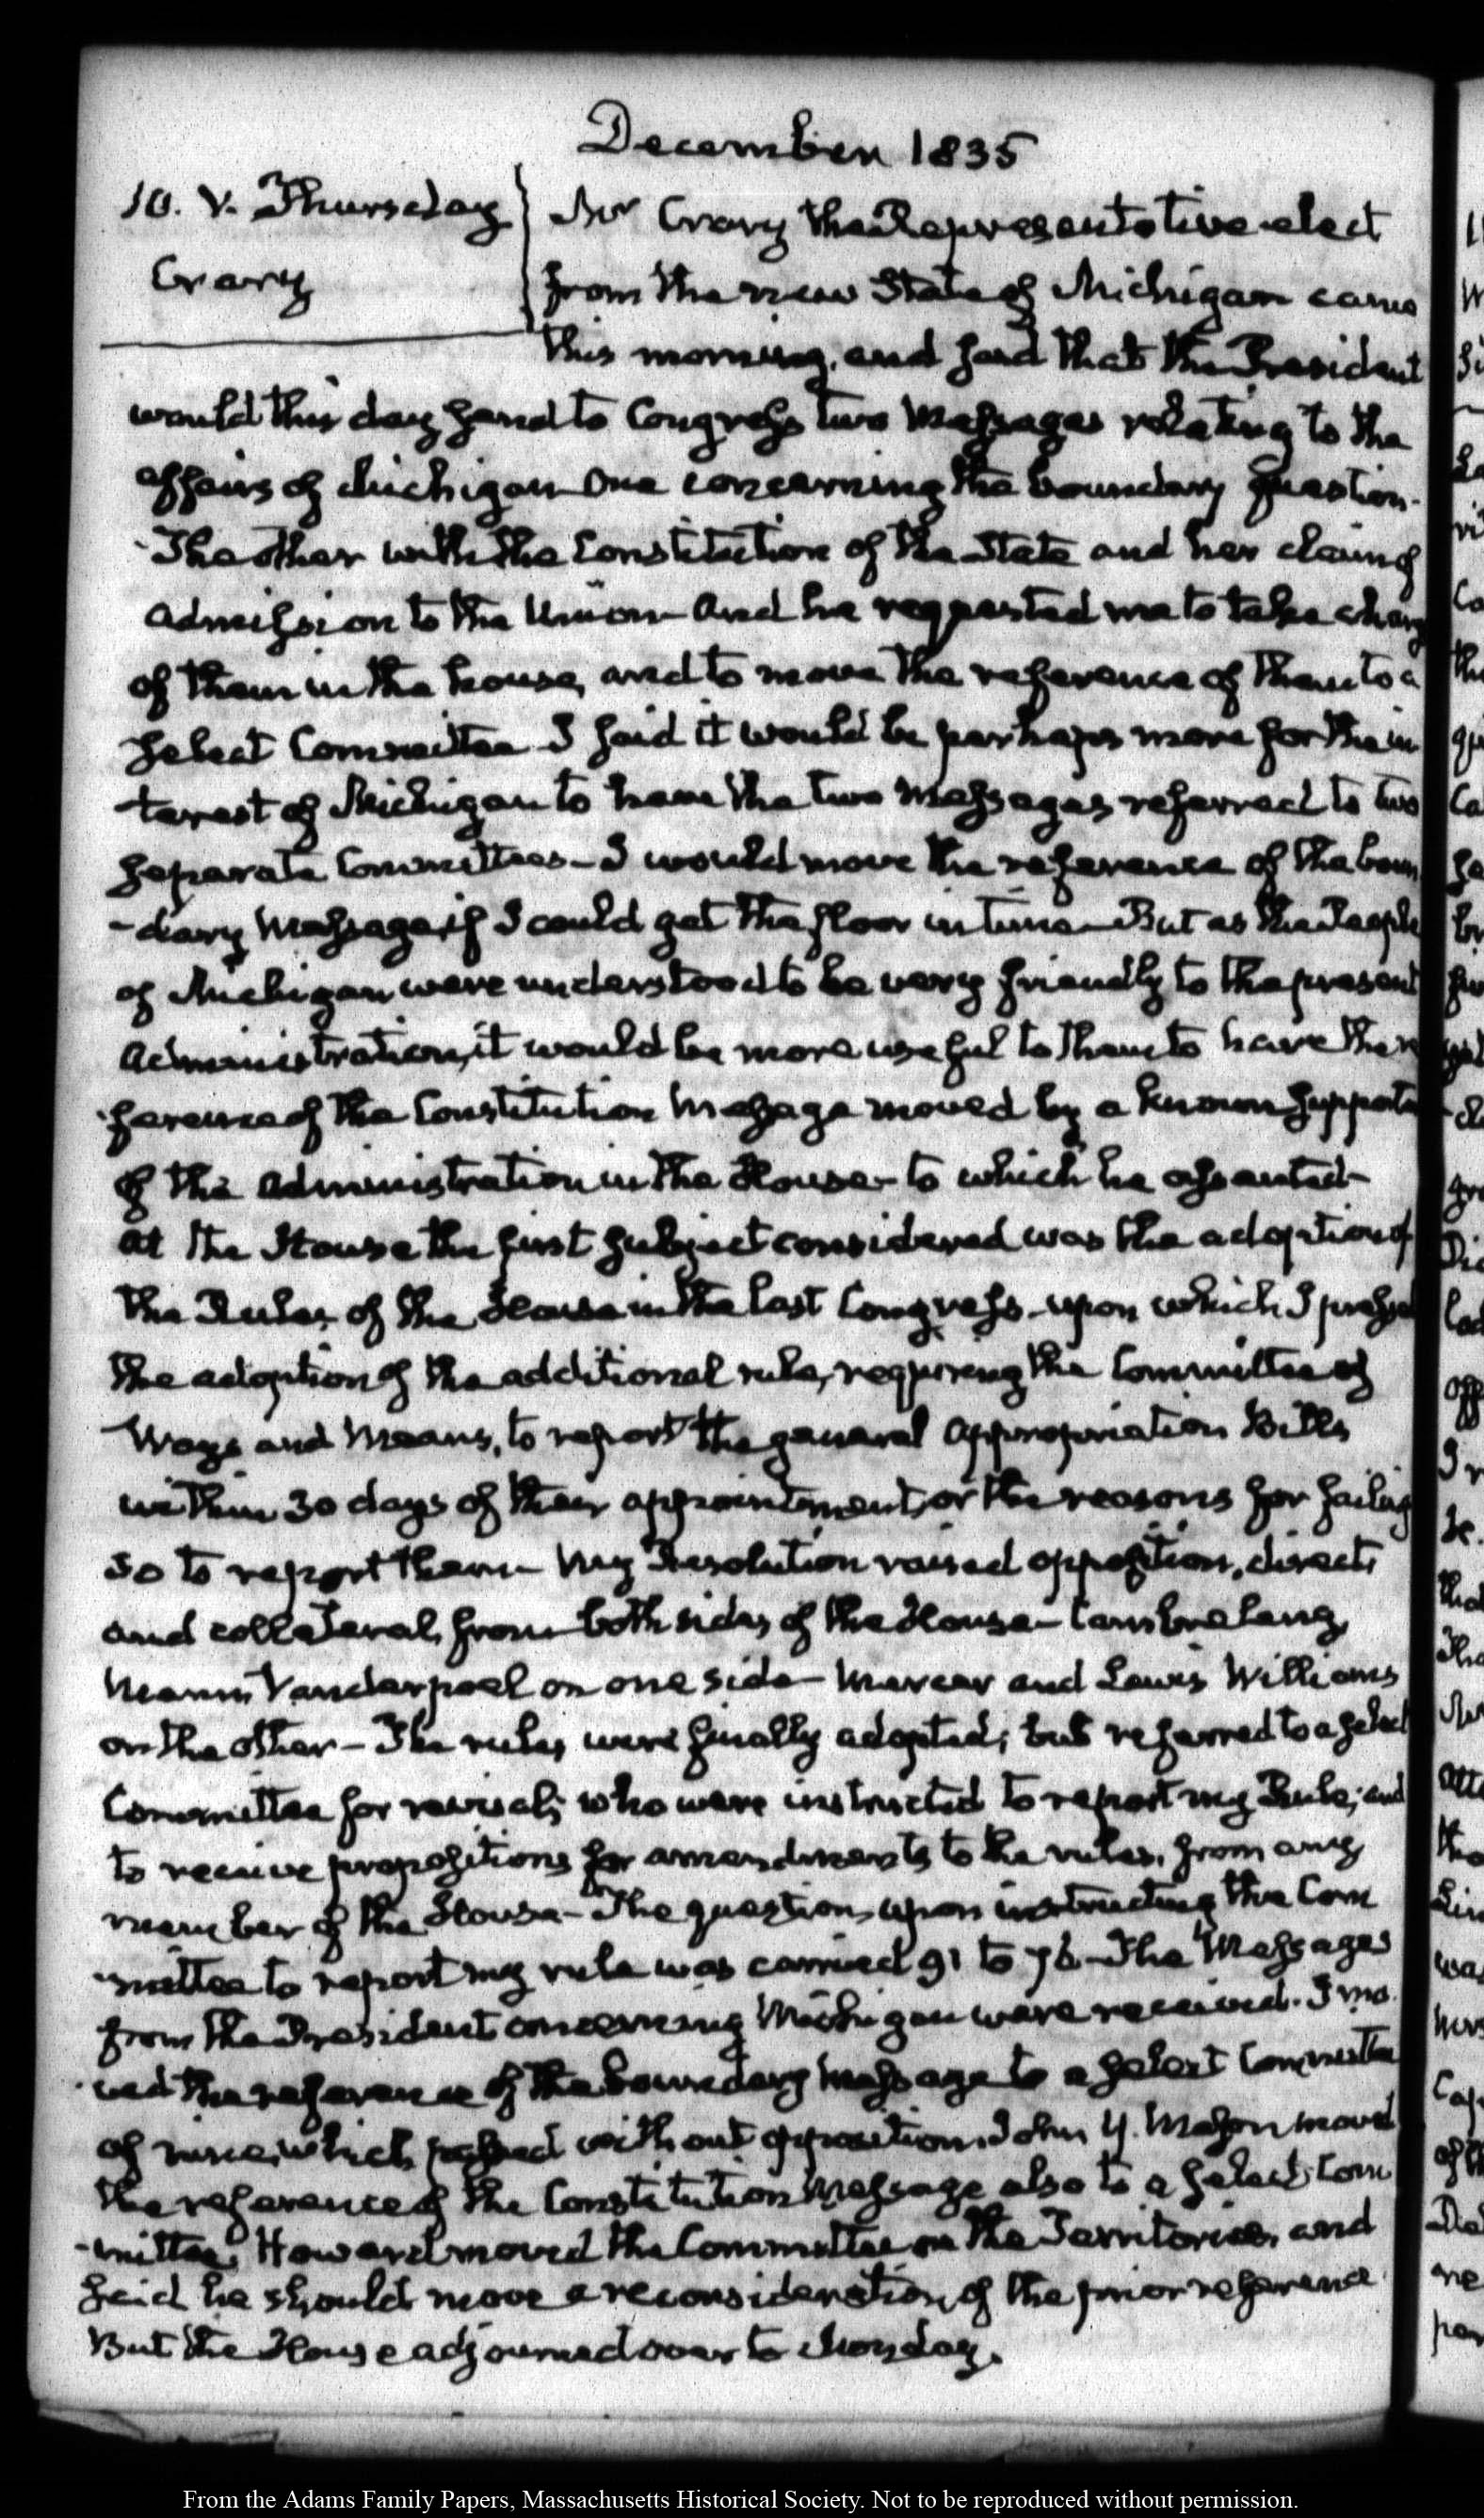 December 1835
10. V. Thursday
Crary
Mr Crary the Representative elect
from the new State of Michigan came
this morning, and said that the President
would this day send to Congress two Messages relating to the
affairs of Michigan One concerning the boundary question.
The other with the Constitution of the State and her claim of
admission to the Union And he requested me to take charg
of them in the house, and to move the reference of them to a
select Committee I said it would be perhaps more for the in
terest of Michigan to have the two Messages referred to two
separate Committees – I would move the reference of the boun
-dary Message, if I could get the floor in time – But as the People
of Michigan were understood to be very friendly to the present
Administration, it would be more useful to them to have the re
-ference of the Constitution Message moved by a known supporter
of the administration in the House – to which he assented –
At the House the first subject considered was the adoption of
the Rules of the House in the last Congress – upon which I pressed
the adoption of the additional rule, requiring the Committee of
Ways and Means, to report the general Appropriation Bills
within 30 days of their appointment, or the reasons for failing
so to report them – My Resolution raised opposition, direct
and collateral, from both sides of the House – Cambreleng,
Mann, Vanderpoel on one side – Mercer and Lewis Williams
on the other – The rules were finally adopted; but referred to a select
Committee for revisal; who were instructed to report my Rule; and
to receive propositions for amendments to the rules, from any
member of the House – The question upon instructing the Com
-mittee to report my rule was carried 91 to 76 – The Messages
from the President concerning Michigan were received. I mo
-ved the reference of the boundary message to a select Committee
of nine, which passed without opposition. John Y. Mason moved
the reference of the Constitution Message also to a select Com
-mittee. Howard moved the Committee on the Territories, and
said he should move a reconsideration of the prior reference
But the House adjourned over to Monday.
From the Adams Family Papers, Massachusetts Historical Society. Not to be reproduced without permission.